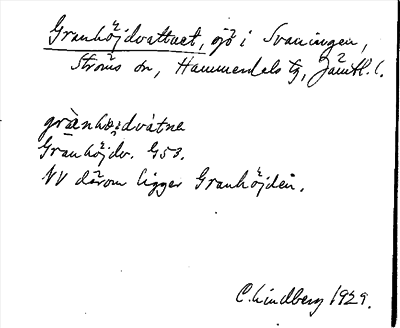 Granhöjdvattnet, sjö i Svaningen,
Ströms sn, Hammerdals tg, Jämtl. l.
grànhøi̯dvátnə
Granhöjdv. G53.
NV därom ligger Granhöjden.
C. Lindberg 1929.